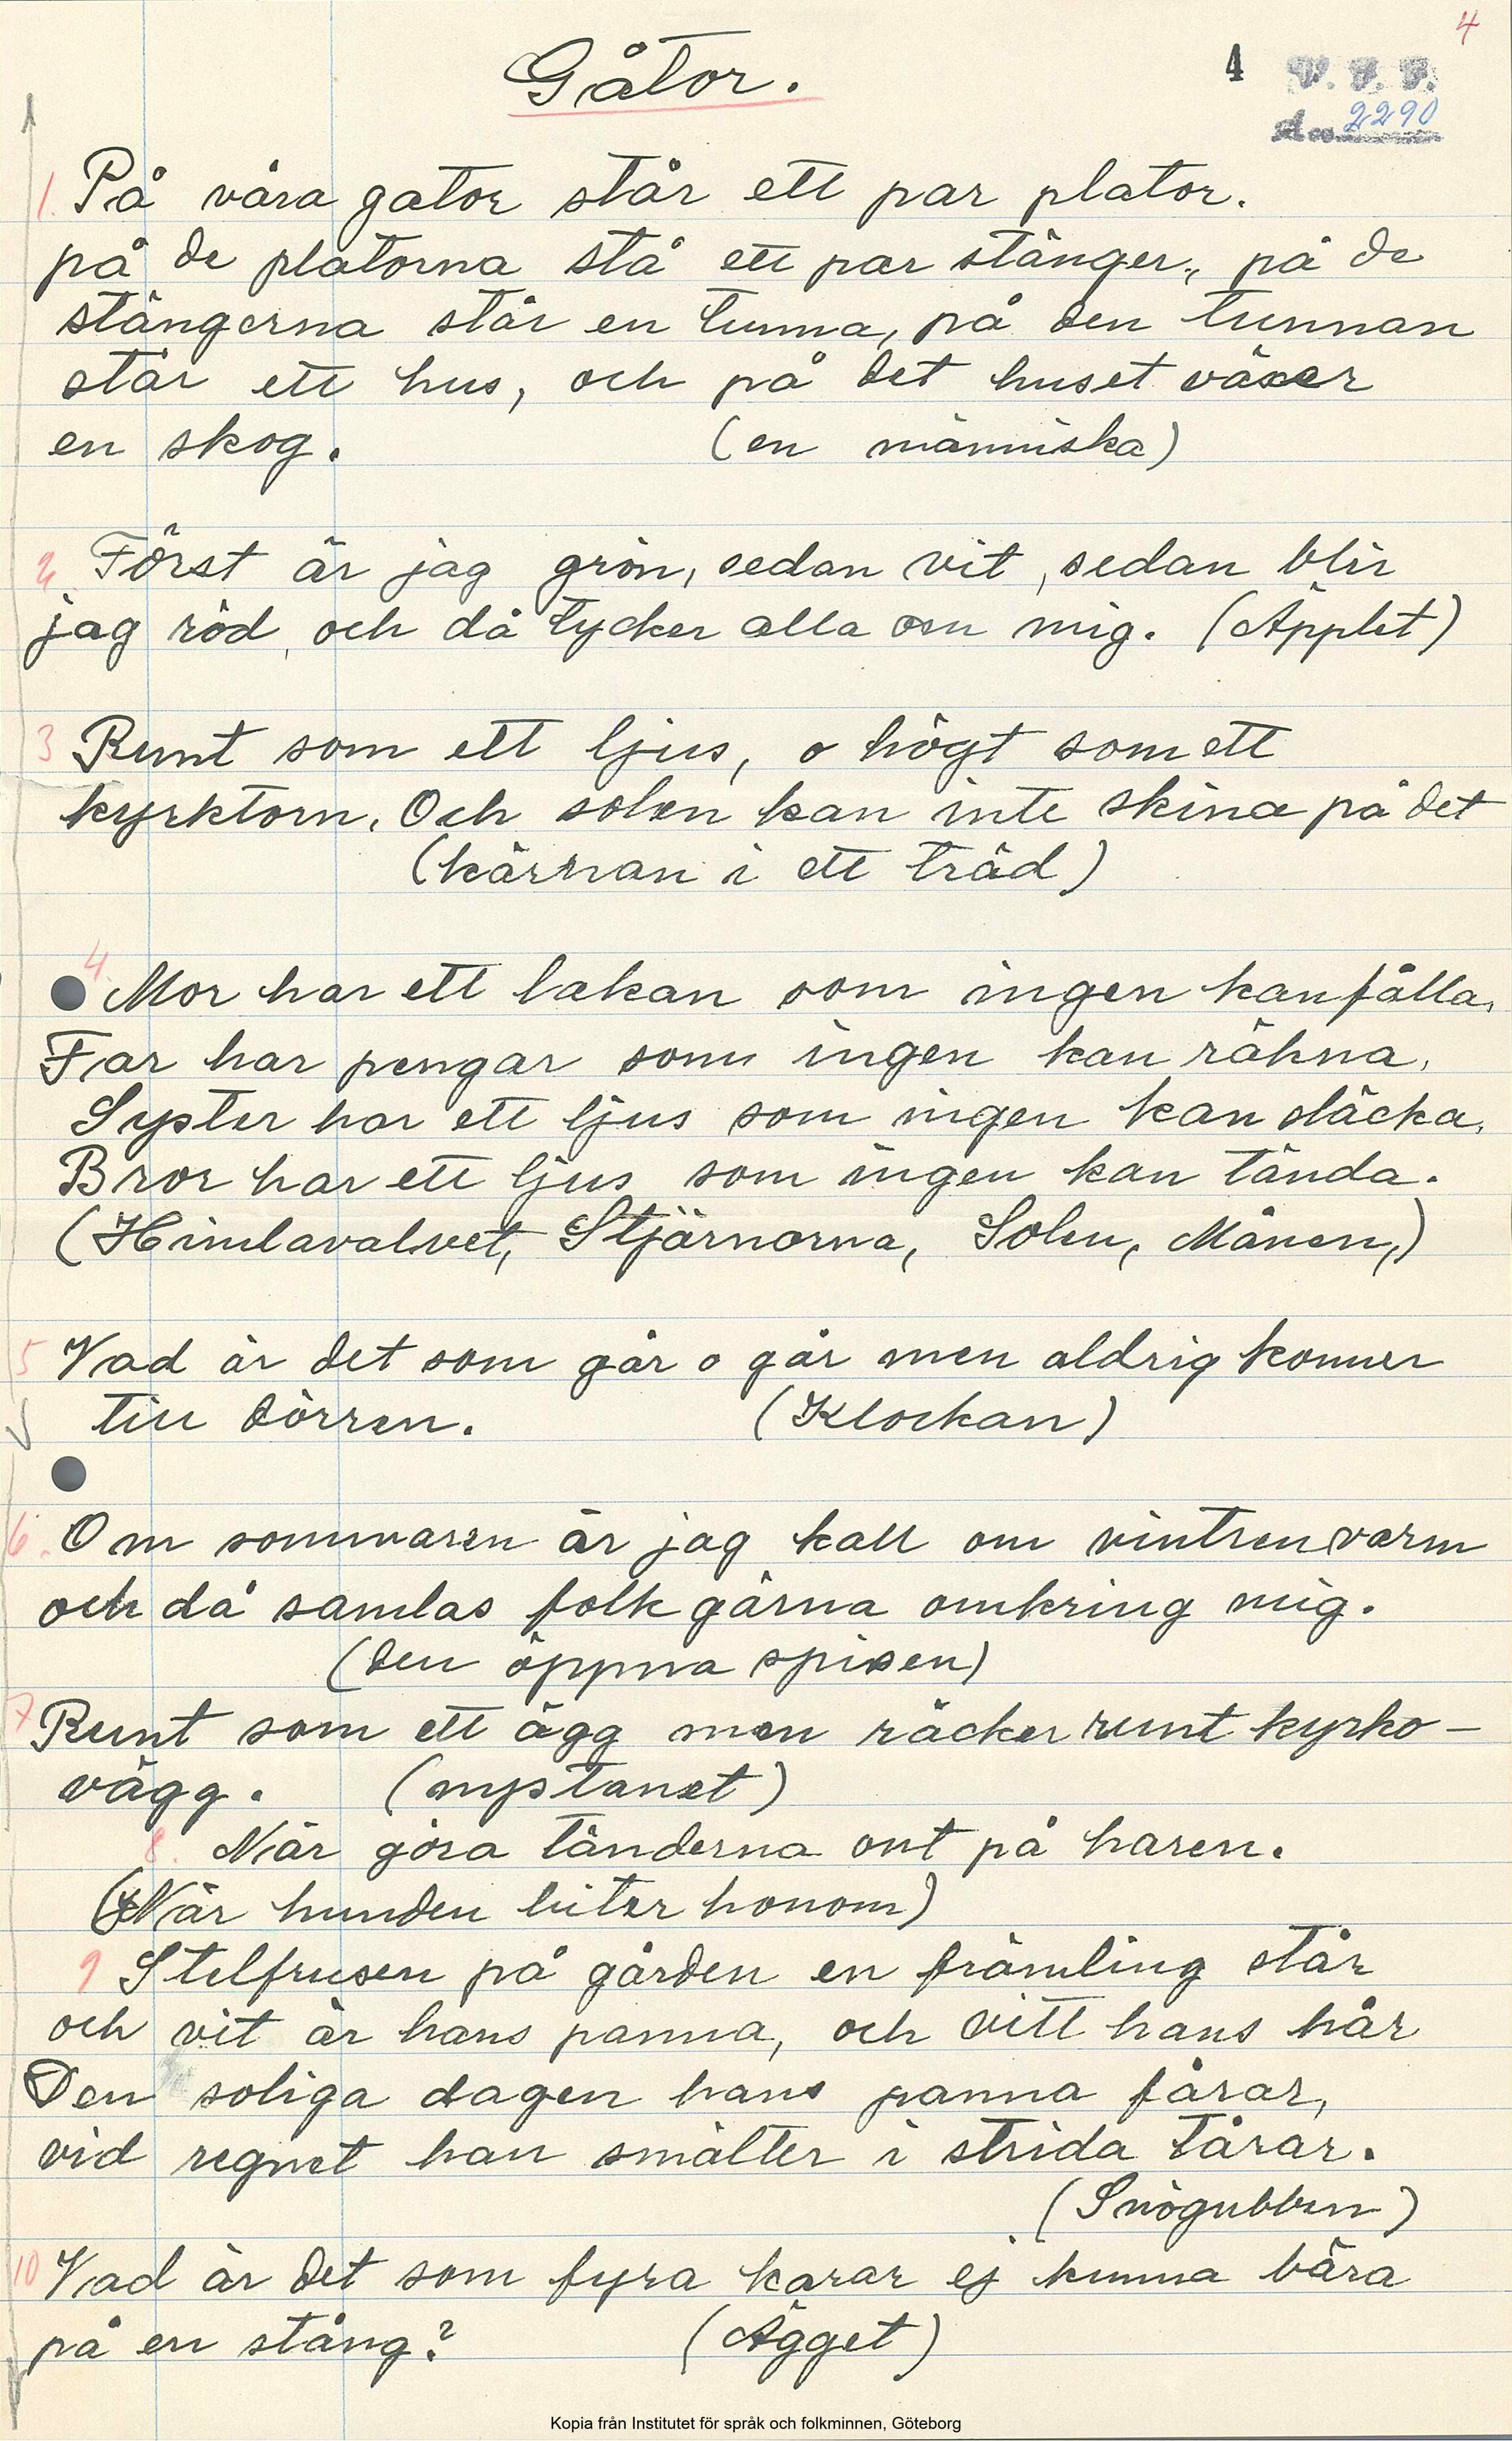 4
Gåtor.
4 V. F. F.
Acc. 2290
1. På våra gator står ett par plator.
på de platorna stå ett par stänger, på de
stängerna står en tunna, på den tunnan
står ett hus, och på det huset växer
en skog. (en människa)
2. Först är jag grön, sedan vit, sedan blir
jag röd, och då tycker alla om mig. (Äpplet)
3 Runt som ett ljus, o högt som ett
kyrktorn. Och solen kan inte skina på det
(kärnan i ett träd)
4. Mor har ett lakan som ingen kan fålla,
Far har pengar som ingen kan räkna,
Syster har ett ljus som ingen kan släcka,
Bror har ett ljus som ingen kan tända.
(Himlavalvet, Stjärnorna, Solen, Månen,)
5 Vad är det som går o går men aldrig kommer
till dörren. (Klockan)
6. Om sommaren är jag kall om vintren varm
och då samlas folk gärna omkring mig.
(den öppna spisen)
7 Runt som ett ägg men räcker runt kyrko-
vägg. (nystanet)
8. När göra tänderna ont på haren.
(När hunden biter honom)
9 Stelfrusen på gården en främling står
och vit är hans panna, och vitt hans hår
Den soliga dagen hans panna fårar,
vid regnet han smälter i strida tårar.
(Snögubben)
10 Vad är det som fyra karar ej kunna bära
på en stång? (Ägget)
Kopia från Institutet för språk och folkminnen, Göteborg